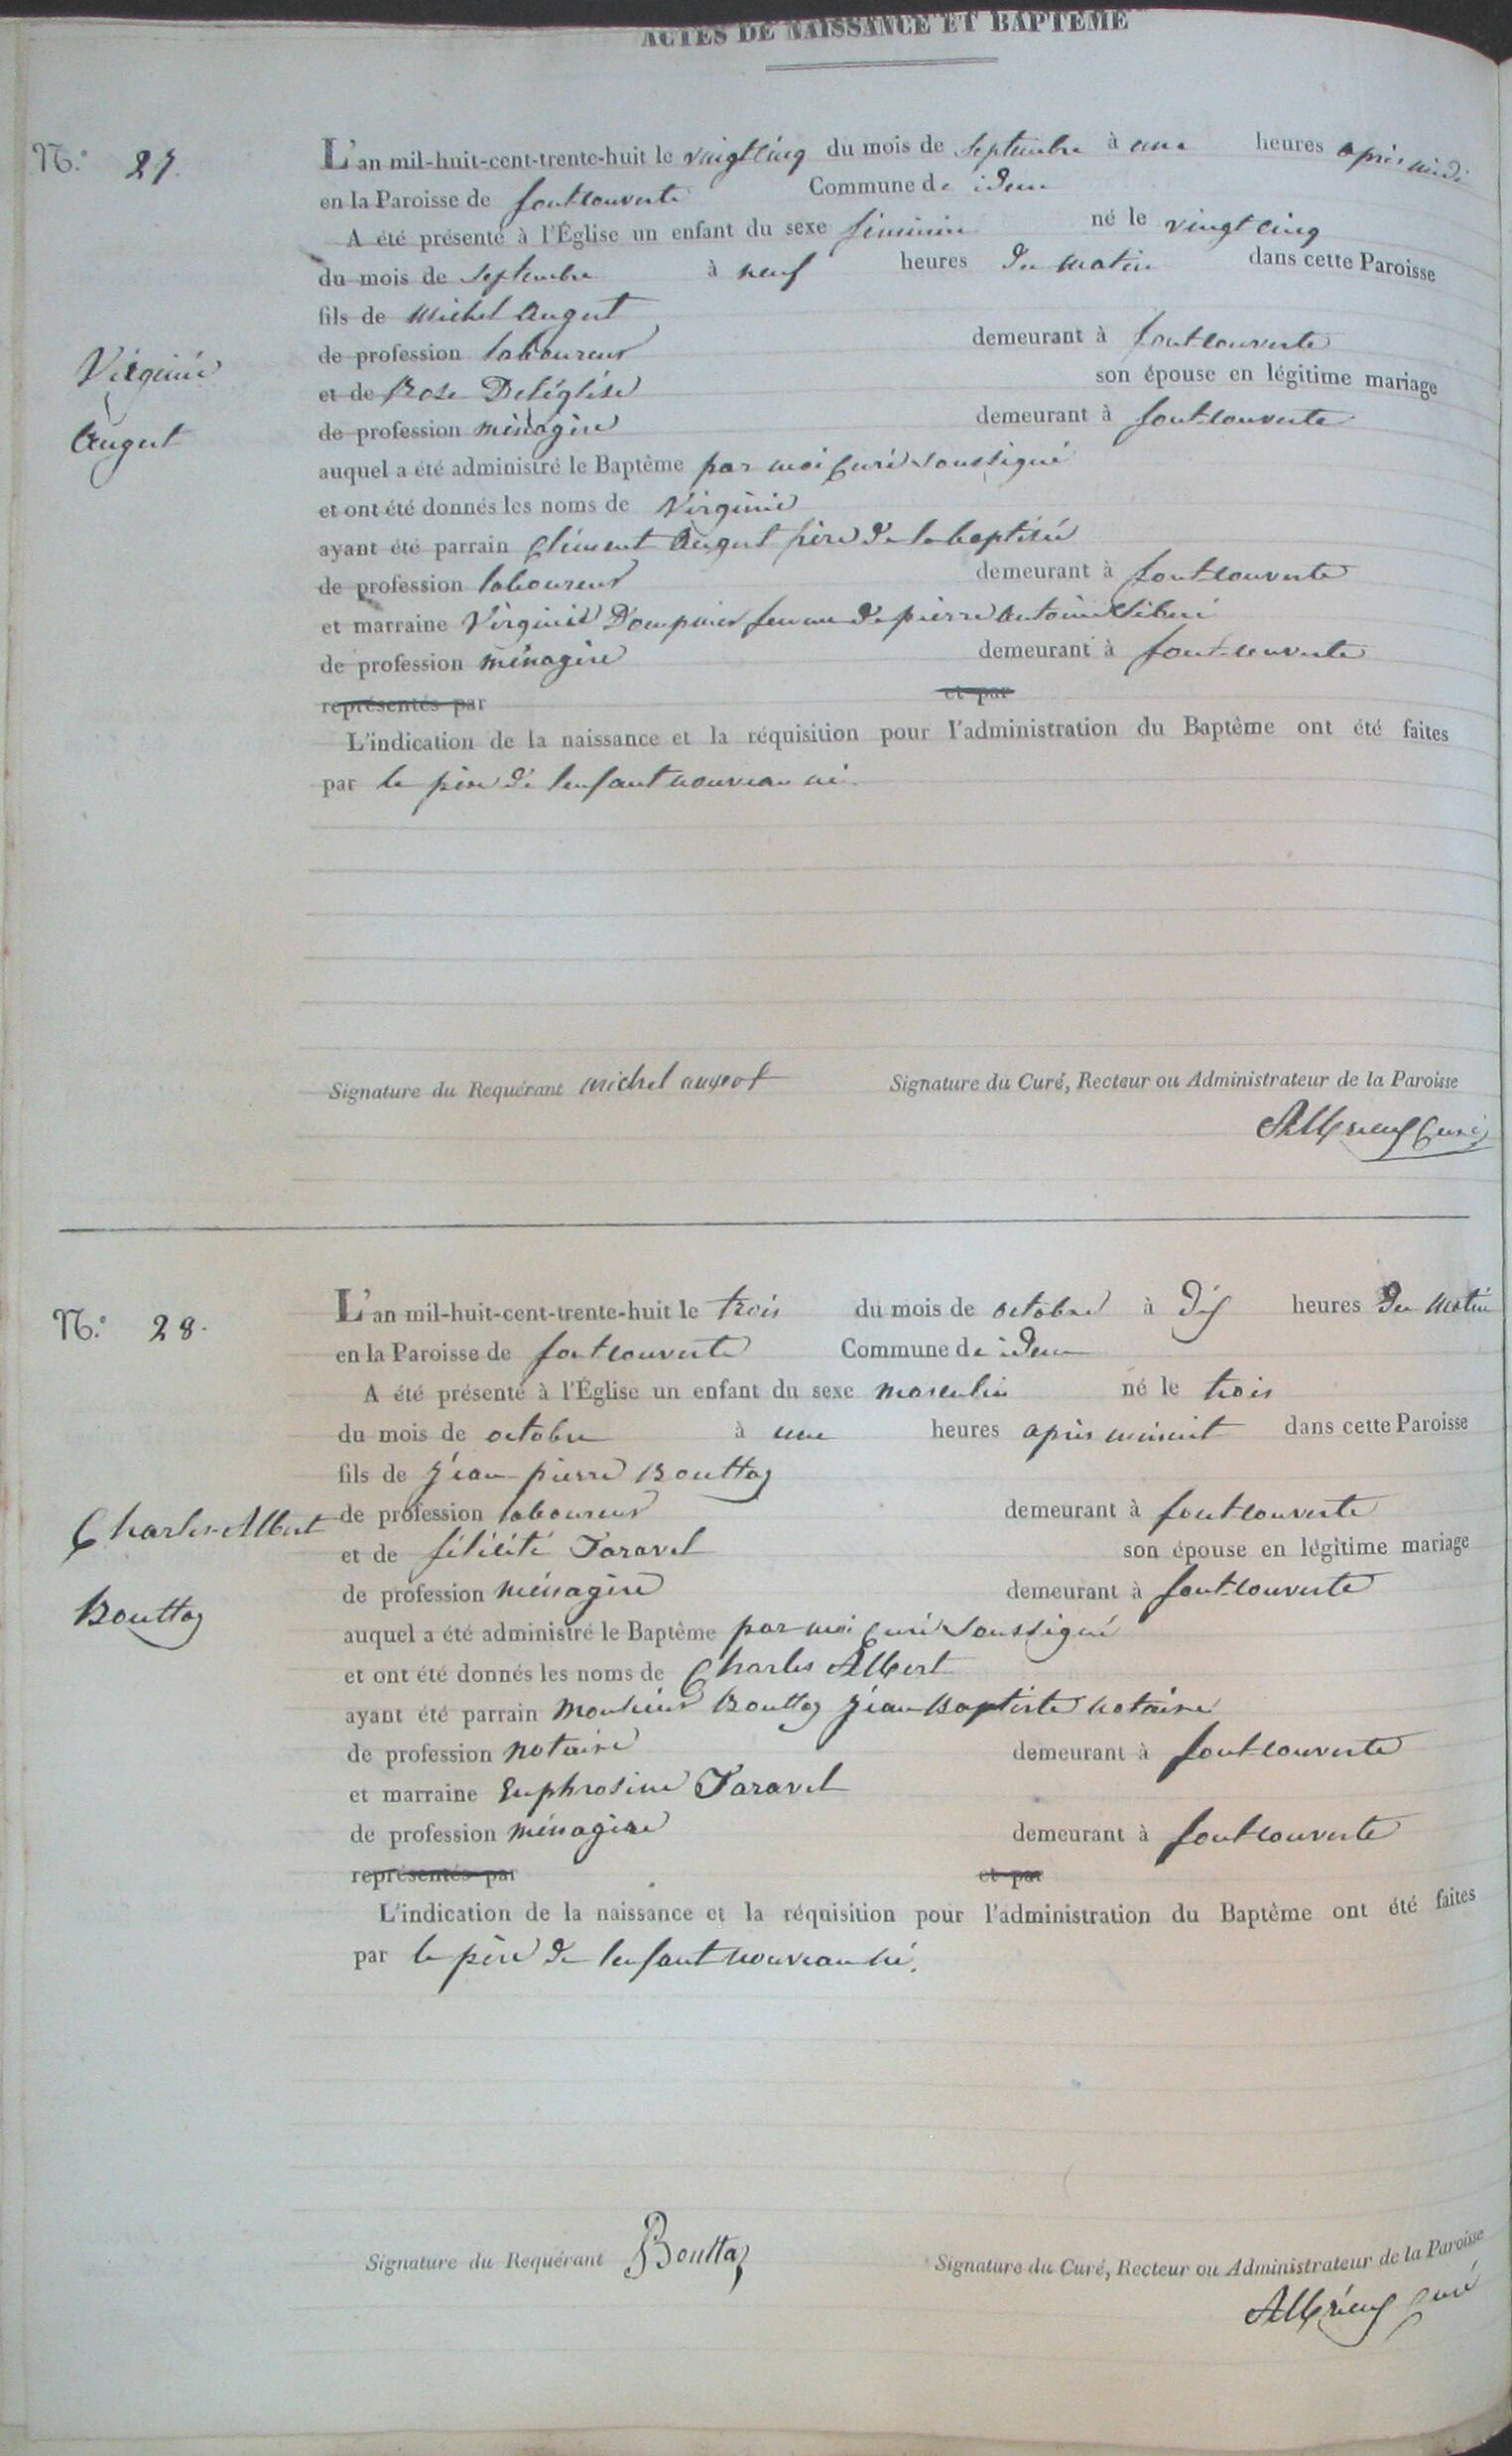 ACTES DE NAISSANCE ET BAPTEME
N.° 27.
L'an mil-huit-cent-trente-huit le vingt cinq du mois de septembre à une heures après midi
en la Paroisse de fontcouverte Commune de idem
A été présenté à l'Église un enfant du sexe féminin né le vingt cinq
du mois de septembre à neuf heures du matin dans cette Paroisse
fils de Michel Augert
de profession laboureur demeurant à fontcouverte
Virginie
et de Rose Deléglise son épouse en légitime mariage
Augert
de profession ménagère demeurant à fontcouverte
auquel a été administré le Baptême par moi Curé soussigné
et ont été donnés les noms de Virginie
ayant été parrain Clément Augert frère de la baptisée
de profession laboureur demeurant à fontcouverte
et marraine Virginie Dompnier femme de pierre antoine
de profession ménagère demeurant à fontcouverte
représentés par et par
L'indication de la naissance et la réquisition pour l'administration du Baptême ont été faites
par le père de lenfant nouveau né.
Signature du Requérant michel augert Signature du Curé, Recteur ou Administrateur de la Paroisse
Curé
N.° 28.
L'an mil-huit-cent-trente-huit le trois du mois de octobre à dix heures du matin
en la Paroisse de fontcouverte Commune de idem
A été présenté à l'Église un enfant du sexe masculin né le trois
du mois de octobre à une heures après minuit dans cette Paroisse
fils de Jean pierre Bouttaz
Charles-Albert
de profession laboureur demeurant à fontcouverte
et de félicité Taravel son épouse en légitime mariage
Bouttaz
de profession ménagère demeurant à fontcouverte
auquel a été administré le Baptême par moi Curé soussigné
et ont été donnés les noms de Charles Albert
ayant été parrain Monsieur Bouttaz Jean Baptiste notaire
de profession notaire demeurant à fontcouverte
et marraine Euphrosine Taravel
de profession ménagère demeurant à fontcouverte
représentés par et par
L'indication de la naissance et la réquisition pour l'administration du Baptême ont été faites
par le père de lenfant nouveau né.
Signature du Requérant Bouttaz Signature du Curé, Recteur ou Administrateur de la Paroisse
curé